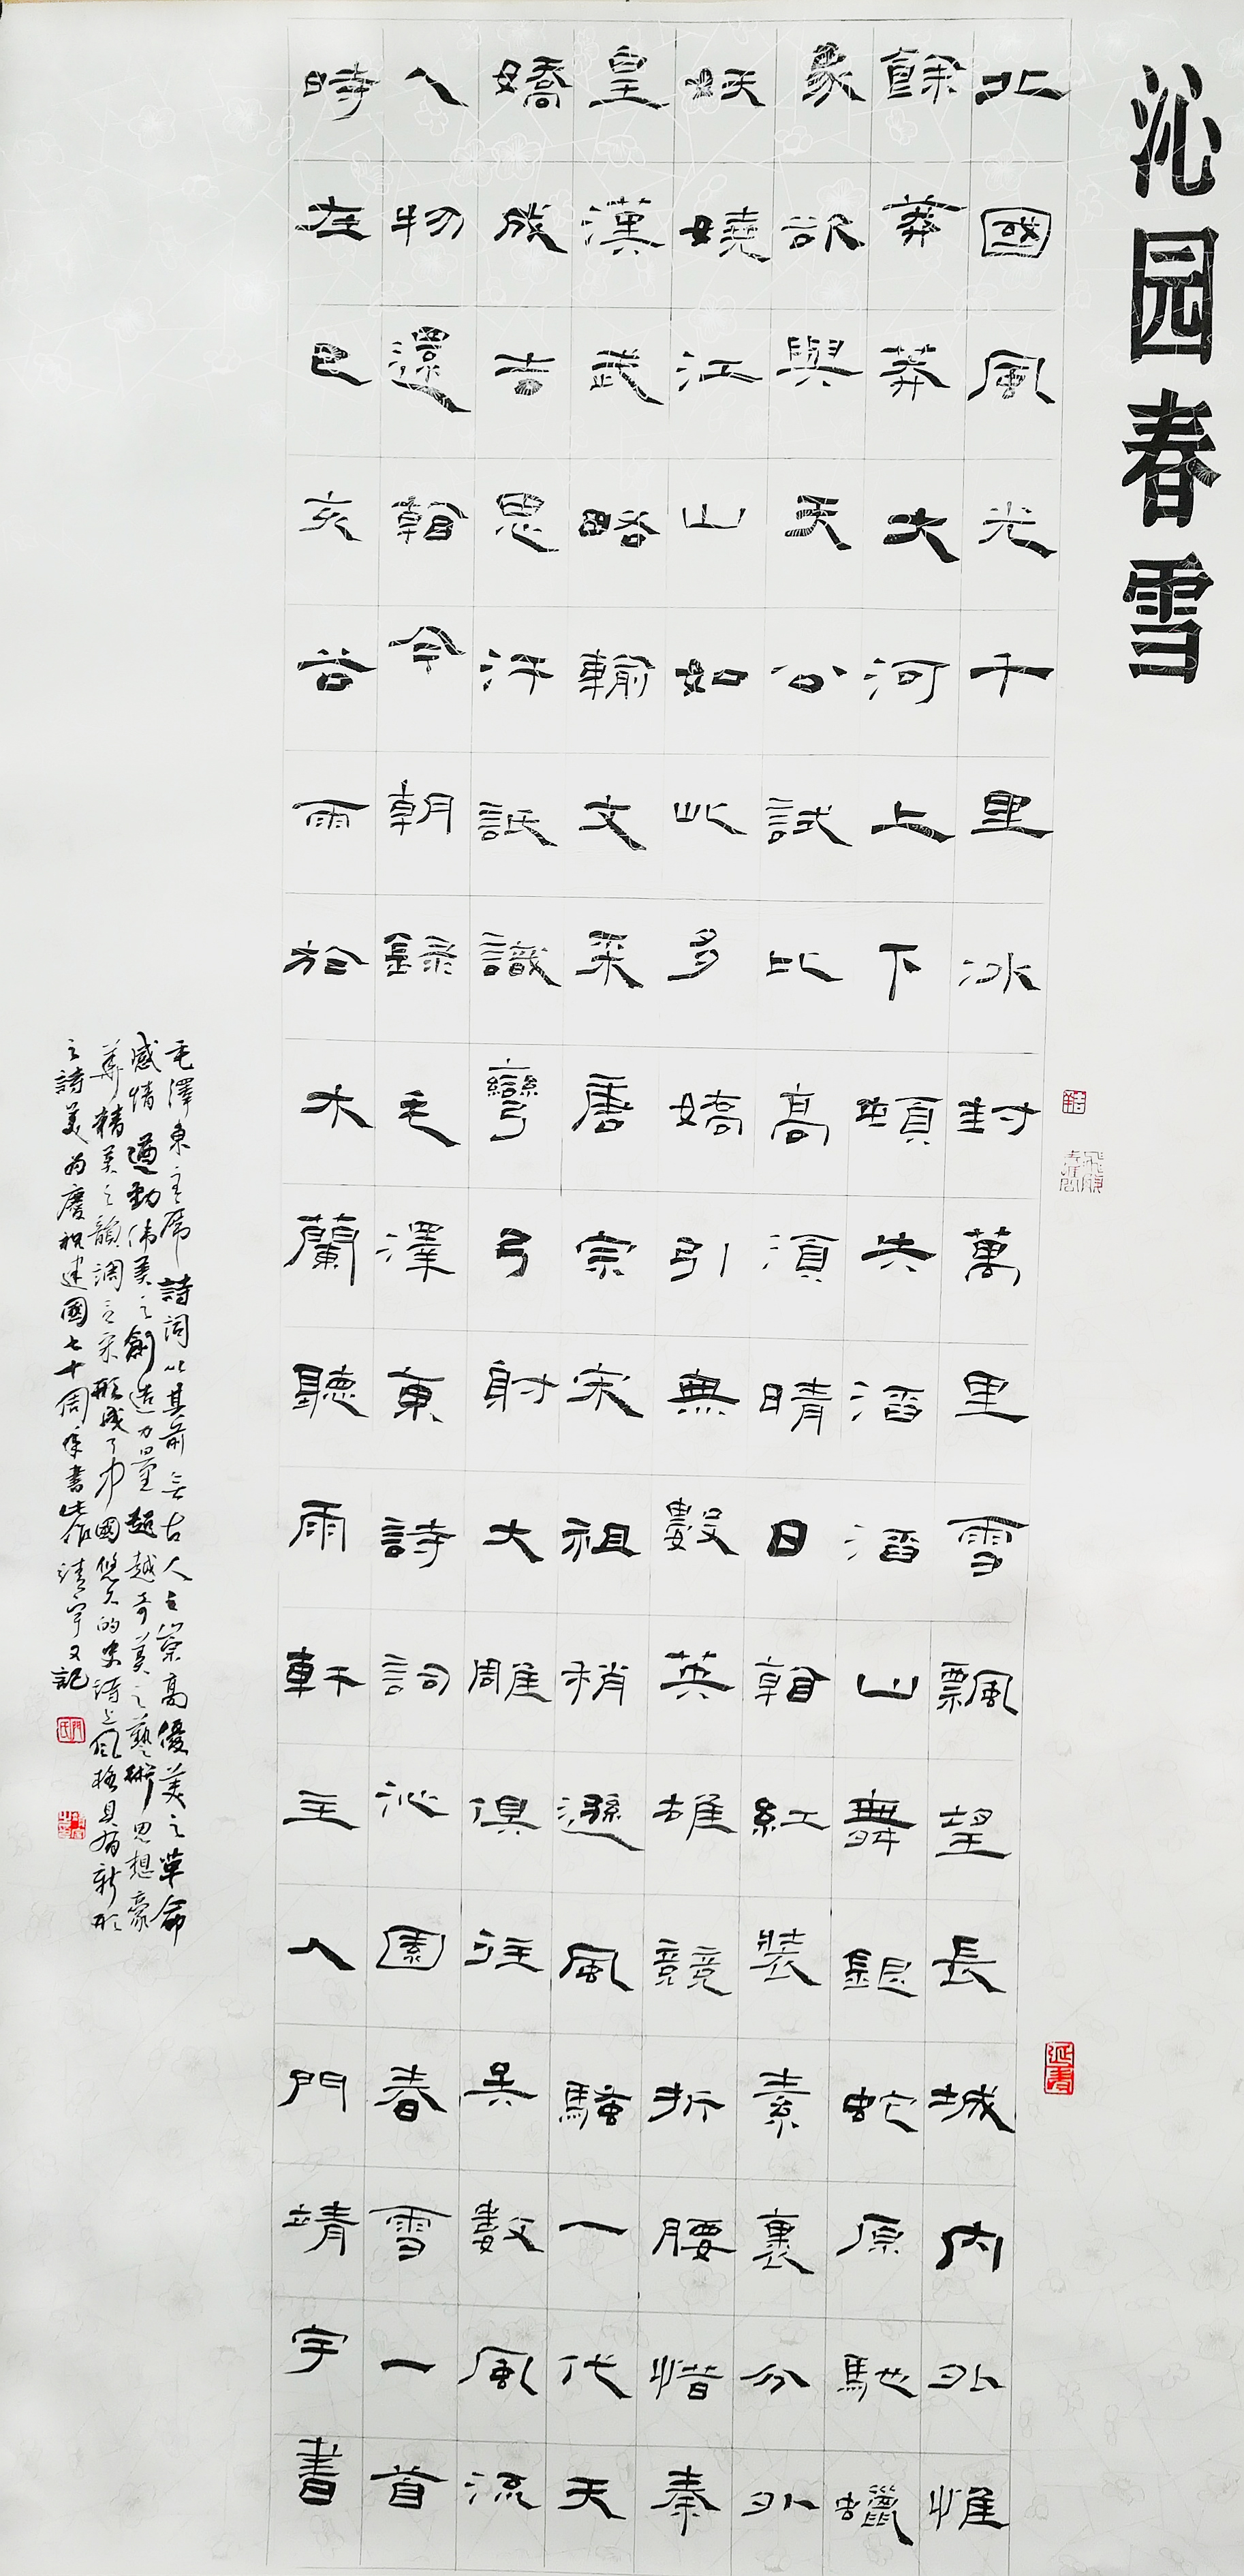 沁园春雪
北國風光千里冰封萬里雪飄望長城內外惟
餘莽莽大河上下頓失滔滔山舞銀蛇原馳蠟
象欲與天公試比高須晴日看紅裝素裹分外
妖嬈江山如此多嬌引無數英雄競折腰惜秦
皇漢武略輸文采唐宗宋祖稍遜風騷一代天
嬌成吉思汗祇識彎弓射大雕俱往矣數風流
人物還看今朝錄毛澤東詩詞沁園春雪一首
時在己亥谷雨於木蘭聽雨軒主人門靖宇書
毛澤東主席詩詞以其前無古人之崇高優美之革命
感情遒勁偉美之創造力量超越奇美之藝術思想豪
華精美之韻調形成了中國悠久的史詩上風格具有新形
之詩美為慶祝建國七十周年書此作靖宇又記
延壽